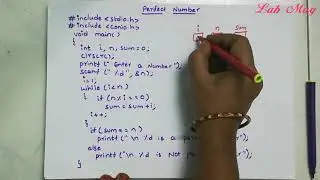 Perfect Number
Lab Mug
# include <stdio.h>
# include <conio.h>
void main()
{
int i, n, sum=0;
clrscr();
printf(" Enter a Number");
scanf(" %d", &n);
i=1;
while (i<n)
{
if (n%i==0)
sum=sum+i;
i++;
}
if (sum==n)
printf("\n %d is a
else
printf("\n %d is Not
}
i n sum